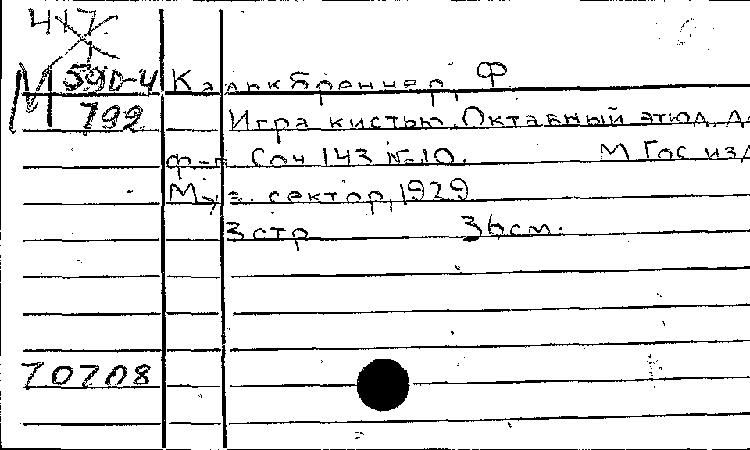 417
М 590-4 Калькбреннер, Ф
792 Игра кистью. Октавный этюд д
ф-п Соч 143 № 10. М Гос изд
Муз. сектор, 1929
3 стр 36 см.
70708